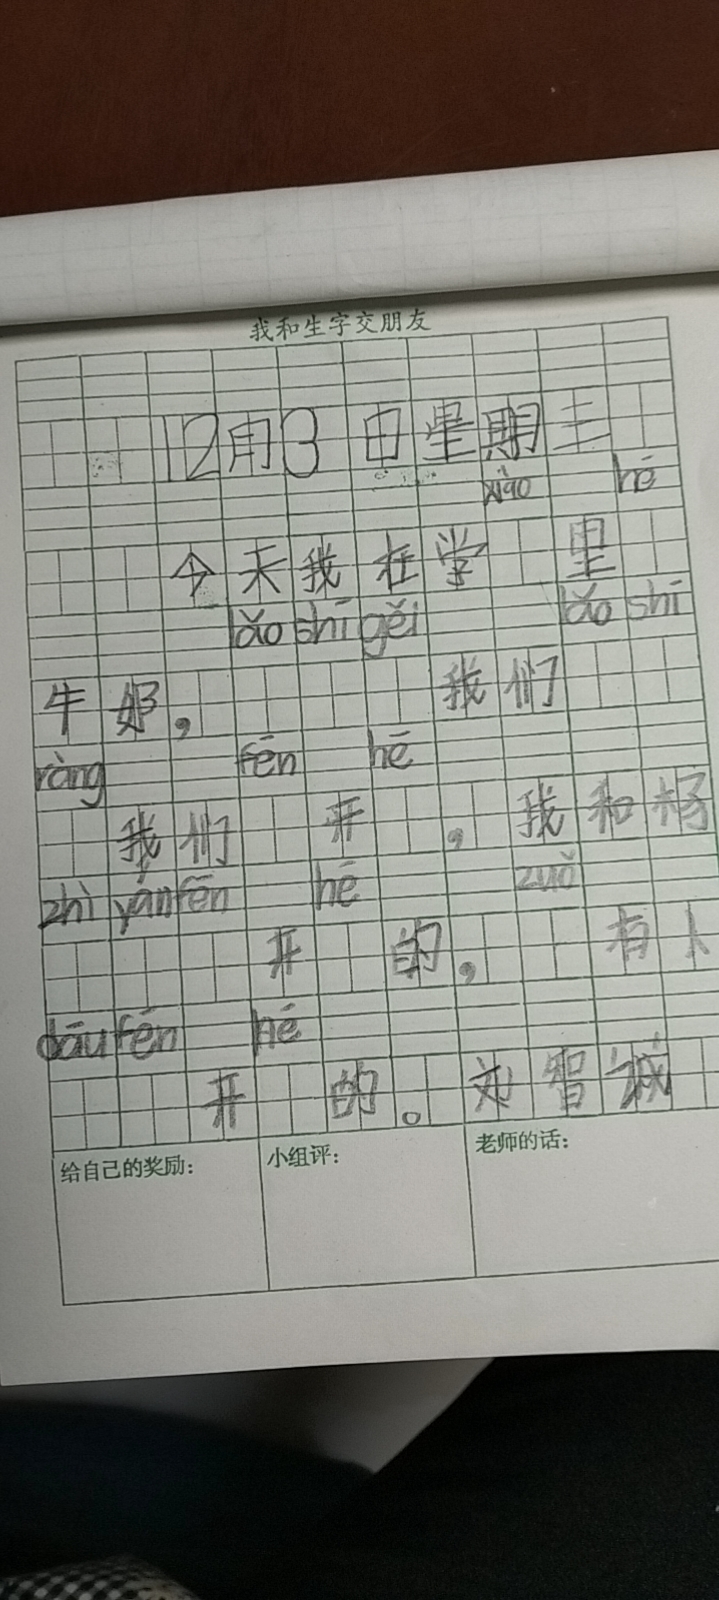 我和生字交朋友
12月3日星期三
xiào hē
今天我在学里
lǎo shī gěi lǎo shī
牛奶，我们
ràng fēn hē
我们开，我和杨
zhì yán fēn hē zuǒ
开的，有
dāu fēn hē
开的。刘智诚
给自己的奖励： 小组评： 老师的话：